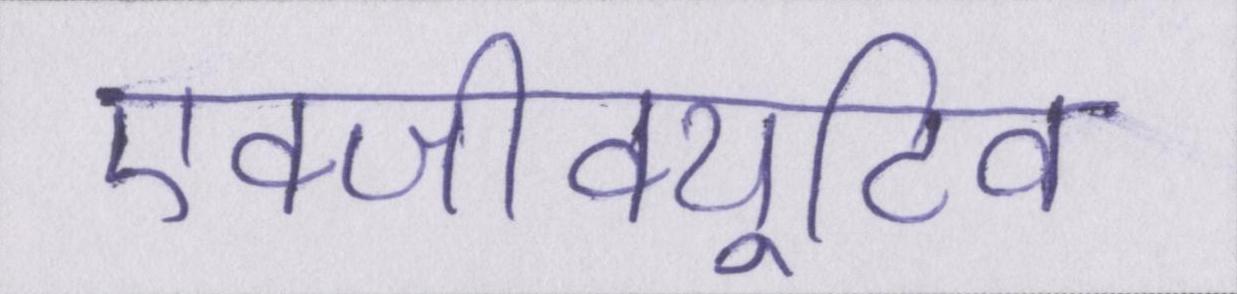 एक्जीक्यूटिव